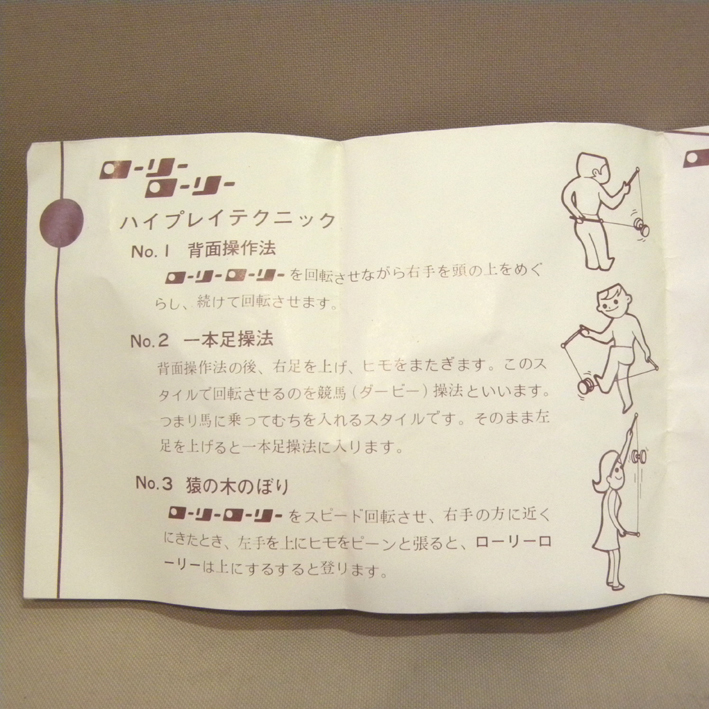 ローリー
ローリー
ハイプレイテクニック
No.1 背面操作法
ローリーローリーを回転させながら右手を頭の上をめぐ
らし、続けて回転させます。
No.2 一本足操法
背面操作法の後、右足を上げ、ヒモをまたぎます。このス
タイルで回転させるのを競馬(ダービー)操法といいます。
つまり馬に乗ってむちを入れるスタイルです。そのまま左
足を上げると一本足操法に入ります。
No.3 猿の木のぼり
ローリーローリーをスピード回転させ、右手の方に近く
にきたとき、左手を上にヒモをピーンと張ると、ローリーロ
ーリーは上にするすると登ります。